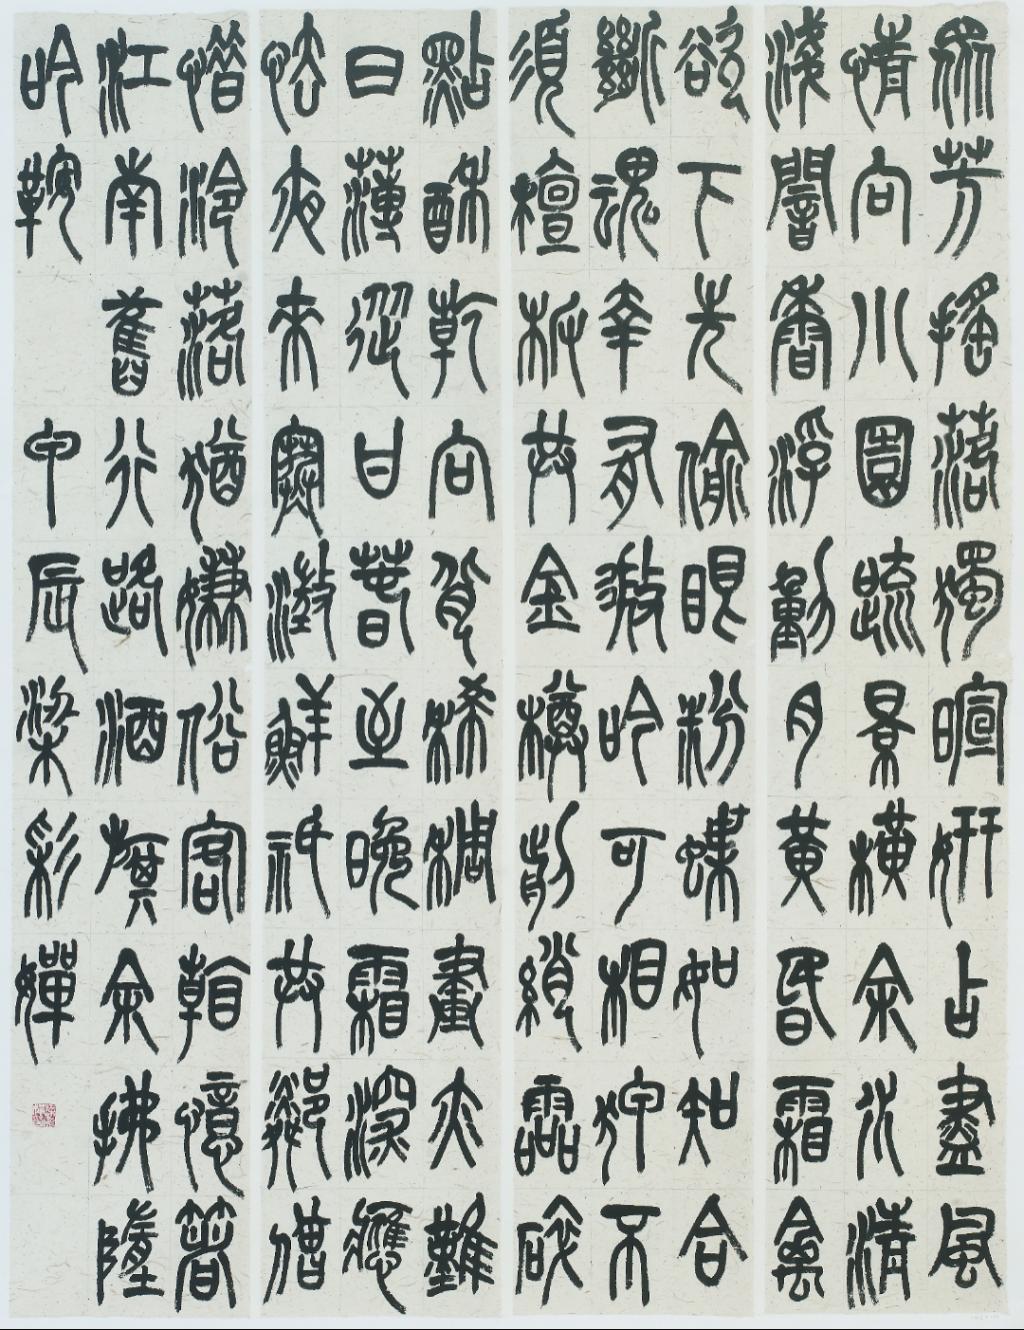 眾芳搖落獨暄妍占盡風
情向小園疏景橫余水清
淺闇香浮動月黃昏霜禽
欲下先偷眼粉蝶如知合
斷魂幸有微吟可相狎不
須檀板共金樽剪綃零碎
點酥乾向背稀稠畫亦難
日薄從甘春至晚霜深應
怯夜來寒澄鮮祇共鄰僧
惜冷落猶嫌俗客看憶著
江南舊行路酒旗余拂墮
吟鞍 甲辰梁彩嬋